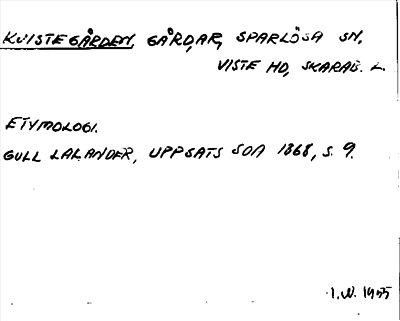 KVISTEGÅRDEN, GÅRDAR, SPARLÖSA SN,
VISTE HD, SKARAB. L.
ETYMOLOGI.
GULL LALANDER, UPPSATS SOA 1868, S. 9.
I.W. 1955